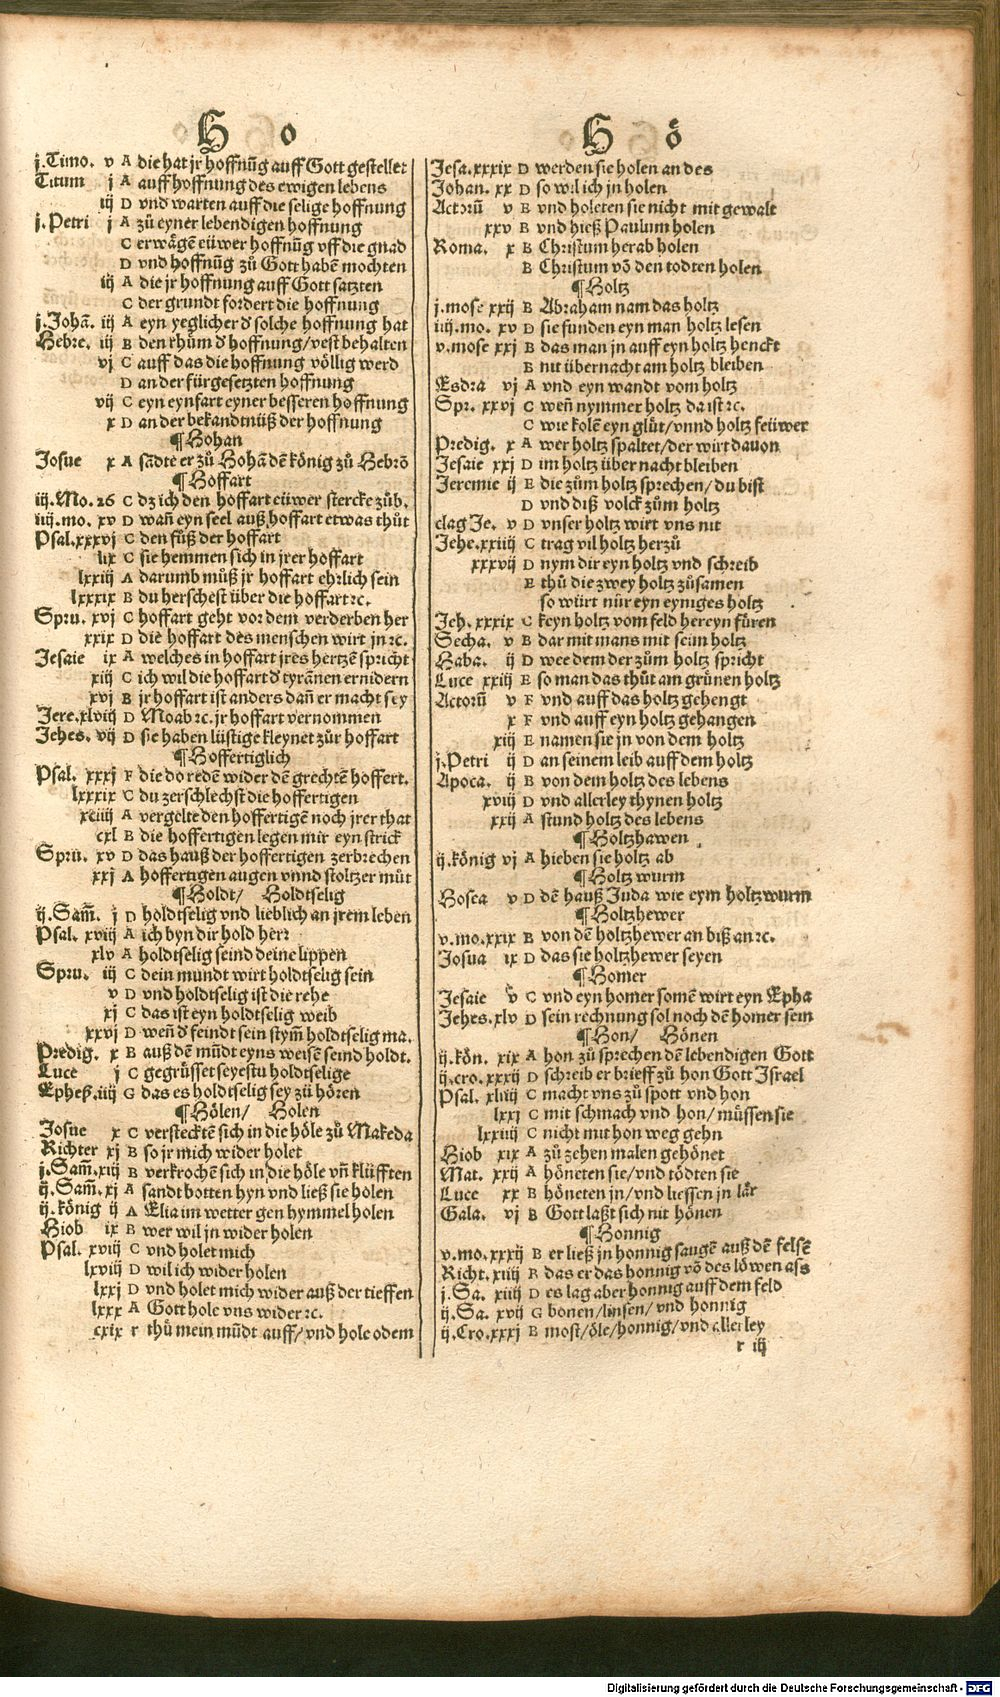 H o
j.Timo. v A die hat jr hoffnũg auff Gott gestellet
Titum j A auff hoffnung des ewigen lebens
iij D vnd warten auff die selige hoffnung
j.Petri j A zů eyner lebendigen hoffnung
C erwågẽ eüwer hoffnũg vff die gnad
D vnd hoffnũg zů Gott habẽ mochten
iij A die jr hoffnung auff Gott satzten
C der grundt fordert die hoffnung
j.Johã. iij A eyn yeglicher d' solche hoffnung hat
Hebre. iij B den rhům d' hoffnung/ vest behalten
vj C auff das die hoffnung völlig werd
D an der fürgesetzten hoffnung
vij C eyn eynfart eyner besseren hoffnung
x D an der bekandtnüß der hoffnung
¶Hohan
Josue x A sãdte er zů Hohã dẽ könig zů Hebrõ
¶Hoffart
iij.Mo. 26 C dz ich den hoffart eüwer stercke zůb.
iiij.mo. xv D wañ eyn seel auß hoffart etwas thůt
Psal.xxxvj C den fůß der hoffart
lix C sie hemmen sich in jrer hoffart
lxxiij A darumb můß jr hoffart ehrlich sein
lxxxix B du herschest über die hoffart ꝛc.
Spru. xvj C hoffart geht vor dem verderben her
xxix D die hoffart des menschen wirt jn ꝛc.
Jesaie ix A welches in hoffart jres hertzẽ spricht
xiij C ich wil die hoffart d' tyrãnen ernidern
xvj B jr hoffart ist anders dañ er macht sey
Jere.xlviij D Moab ꝛc. jr hoffart vernommen
Jehes. vij D sie haben lüstige kleynet zůr hoffart
¶Hoffertiglich
Psal. xxxj F die do redẽ wider dẽ grechtẽ hoffert.
lxxxix C du zerschlechst die hoffertigen
xciiij A vergelte den hoffertigẽ noch jrer that
cxl B die hoffertigen legen mir eyn strick
Sprü. xv D das hauß der hoffertigen zerbrechen
xxj A hoffertigen augen vnnd stoltzer můt
¶Holdt/ Holdtselig
ij.Sam̃. j D holdtselig vnd lieblich an jrem leben
Psal. xviij A ich byn dir hold herr
xlv A holdtselig seind deine lippen
Spru. iij C dein mundt wirt holdtselig sein
v D vnd holdtselig ist die rehe
xj C das ist eyn holdtselig weib
xxvj D weñ d' feindt sein stym̃ holdtselig ma.
Predig. x B auß dẽ mũdt eyns weisẽ seind holdt.
Luce j C gegrüsset seyestu holdtselige
Epheß.iiij G das es holdtselig sey zů hören
¶Hölen/ Holen
Josue x C verstecktẽ sich in die höle zů Makeda
Richter xj B so jr mich wider holet
j.Sam̃.xiij B verkrochẽ sich in die höle vñ klüfften
ij.Sam̃. xj A sandt botten hyn vnd ließ sie holen
ij.könig ij A Elia im wetter gen hymmel holen
Hiob ix B wer wil jn wider holen
Psal. xviij C vnd holet mich
lxviij D wil ich wider holen
lxxj D vnd holet mich wider auß der tieffen
lxxx A Gott hole vns wider ꝛc.
cxix r thů mein mũdt auff/ vnd hole odem
H ö
Jesa.xxxix D werden sie holen an des
Johan. xx D so wil ich jn holen
Actorũ v B vnd holeten sie nicht mit gewalt
xxv B vnd hieß Paulum holen
Roma. x B Christum herab holen
B Christum võ den todten holen
¶Holtz
j.mose xxij B Abraham nam das holtz
iiij.mo. xv D sie funden eyn man holtz lesen
v.mose xxj B das man jn auff eyn holtz henckt
B nit übernacht am holtz bleiben
Esdra vj A vnd eyn wandt vom holtz
Spr. xxvj C weñ nymmer holtz da ist ꝛc.
C wie kolẽ eyn glůt/ vnnd holtz feüwer
Predig. x A wer holtz spaltet/ der wirt dauon
Jesaie xxj D im holtz über nacht bleiben
Jeremie ij E die zům holtz sprechen/ du bist
D vnd diß volck zům holtz
clag Je. v D vnser holtz wirt vns nit
Jehe.xxiiij C trag vil holtz herzů
xxxvij D nym dir eyn holtz vnd schreib
E thů die zwey holtz zůsamen
so würt nür eyn eyniges holtz
Jeh. xxxix C keyn holtz vom feld hereyn füren
Secha. v B dar mit mans mit seim holtz
Haba. ij D wee dem der zům holtz spricht
Luce xxiij E so man das thůt am grünen holtz
Actorũ v F vnd auff das holtz gehengt
x F vnd auff eyn holtz gehangen
xiij E namen sie jn von dem holtz
j.Petri ij D an seinem leib auff dem holtz
Apoca. ij B von dem holtz des lebens
xviij D vnd allerley thynen holtz
xxij A stund holtz des lebens
¶Holtzhawen
ij.könig vj A hieben sie holtz ab
¶Holtz wurm
Hosea v D dẽ hauß Juda wie eym holtzwurm
¶Holtzhewer
v.mo.xxix B von dẽ holtzhewer an biß an ꝛc.
Josua ix D das sie holtzhewer seyen
¶Homer
Jesaie v C vnd eyn homer somẽ wirt eyn Epha
Jehes.xlv D sein rechnung sol noch dẽ homer sein
¶Hon/ Hönen
ij.kön. xix A hon zů sprechen dẽ lebendigen Gott
ij.cro.xxxij D schreib er brieff zů hon Gott Israel
Psal. xliiij C macht vns zů spott vnd hon
lxxj C mit schmach vnd hon/ müssen sie
lxxiiij C nicht mit hon weg gehn
Hiob xix A zů zehen malen gehönet
Mat. xxij A höneten sie/ vnd tödten sie
Luce xx B höneten jn/ vnd liessen jn lår
Gala. vj B Gott laßt sich nit hönen
¶Honnig
v.mo.xxxij B er ließ jn honnig saugẽ auß dẽ felsẽ
Richt.xiiij B das er das honnig võ des löwen ass
j.Sa. xiiij D es lag aber honnig auff dem feld
ij.Sa. xvij G bonen/ linsen/ vnd honnig
ij.Cro.xxxj B most/ öle/ honnig/ vnd allerley
r iij
Digitalisierung gefördert durch die Deutsche Forschungsgemeinschaft - DFG